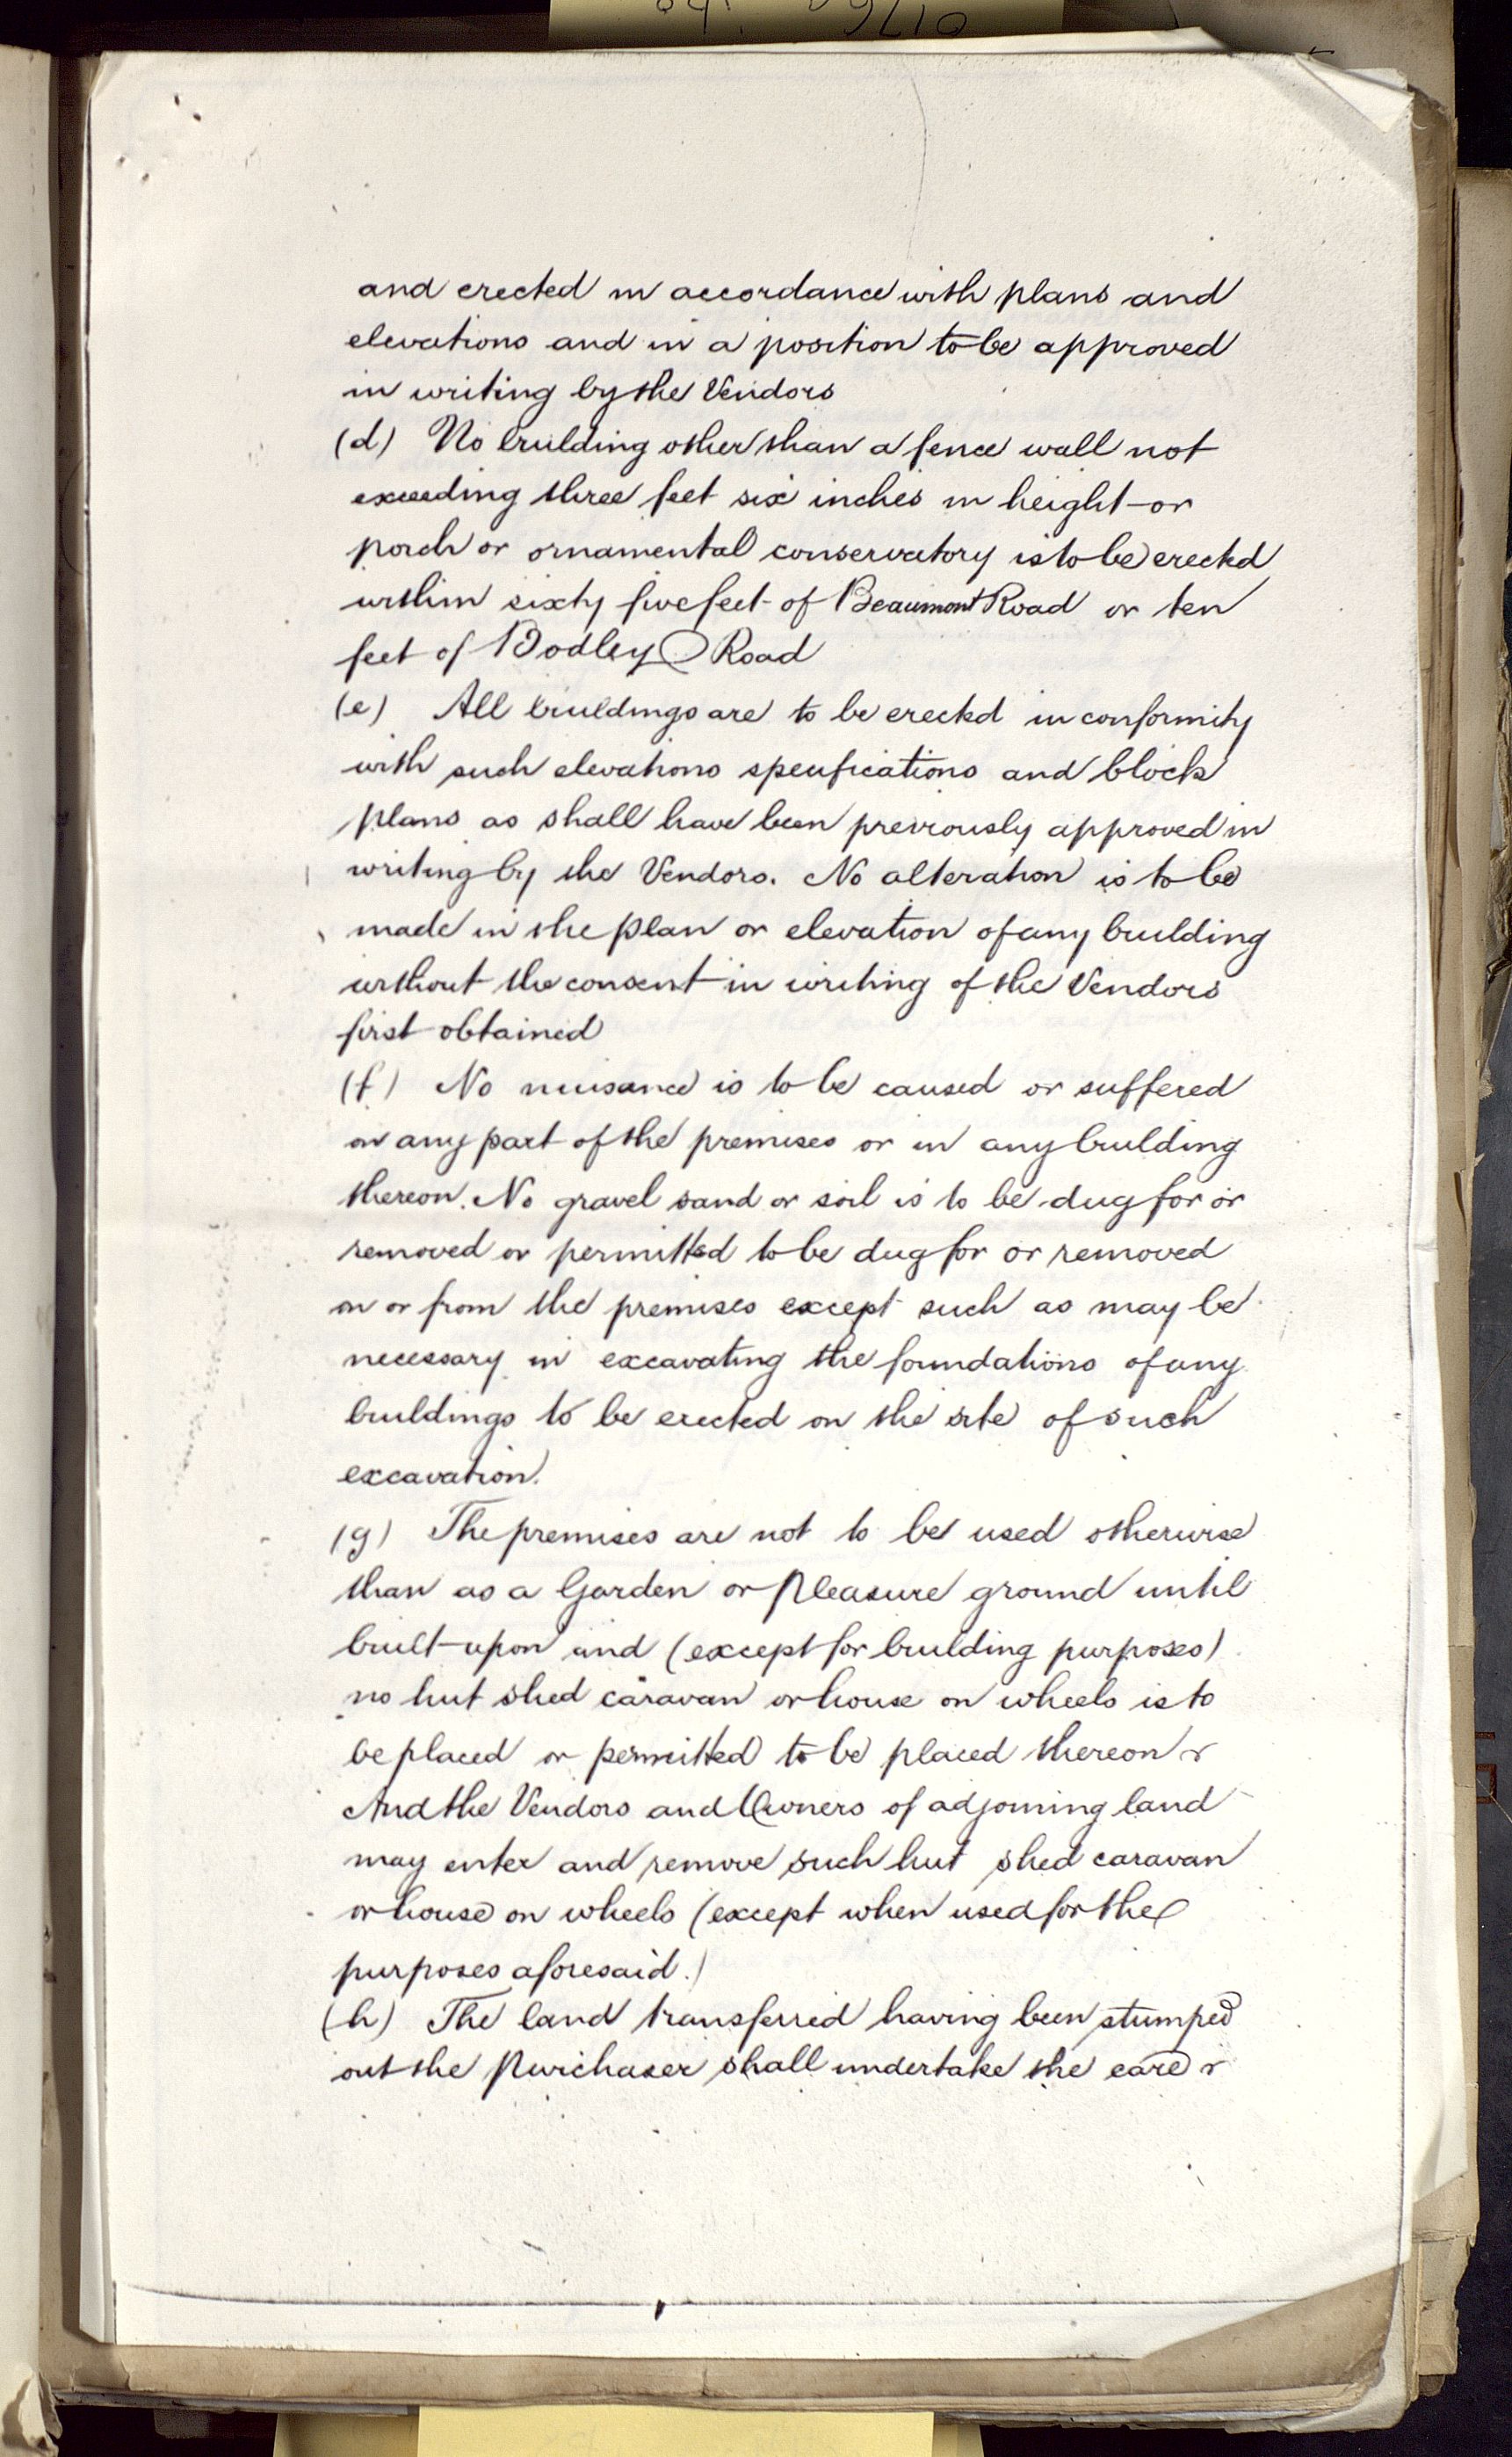 and erected in accordance with plans and
elevations and in a position to be approved
in writing by the Vendors
(d) No building other than a fence wall not
exceeding three feet six inches in height or
porch or ornamental conservatory is to be erected
within sixty five feet of Beaumont Road or ten
feet of Bodley Road
(e) All buildings are to be erected in conformity
with such elevations specifications and block
plans as shall have been previously approved in
writing by the Vendors. No alteration is to be
made in the plan or elevation of any building
without the consent in writing of the Vendors
first obtained
(f) No nuisance is to be caused or suffered
on any part of the premises or in any building
thereon. No gravel sand or soil is to be dug for or
removed or permitted to be dug for or removed
on or from the premises except such as may be
necessary in excavating the foundations of any
buildings to be erected on the site of such
excavation.
(g) The premises are not to be used otherwise
than as a Garden or Pleasure ground until
built upon and (except for building purposes)
no hut shed caravan or house on wheels is to
be placed or permitted to be placed thereon &
And the Vendors and Owners of adjoining land
may enter and remove such hut shed caravan
or house on wheels (except when used for the
purposes aforesaid.)
(h) The land transferred having been stumped
out the Purchaser shall undertake the care &